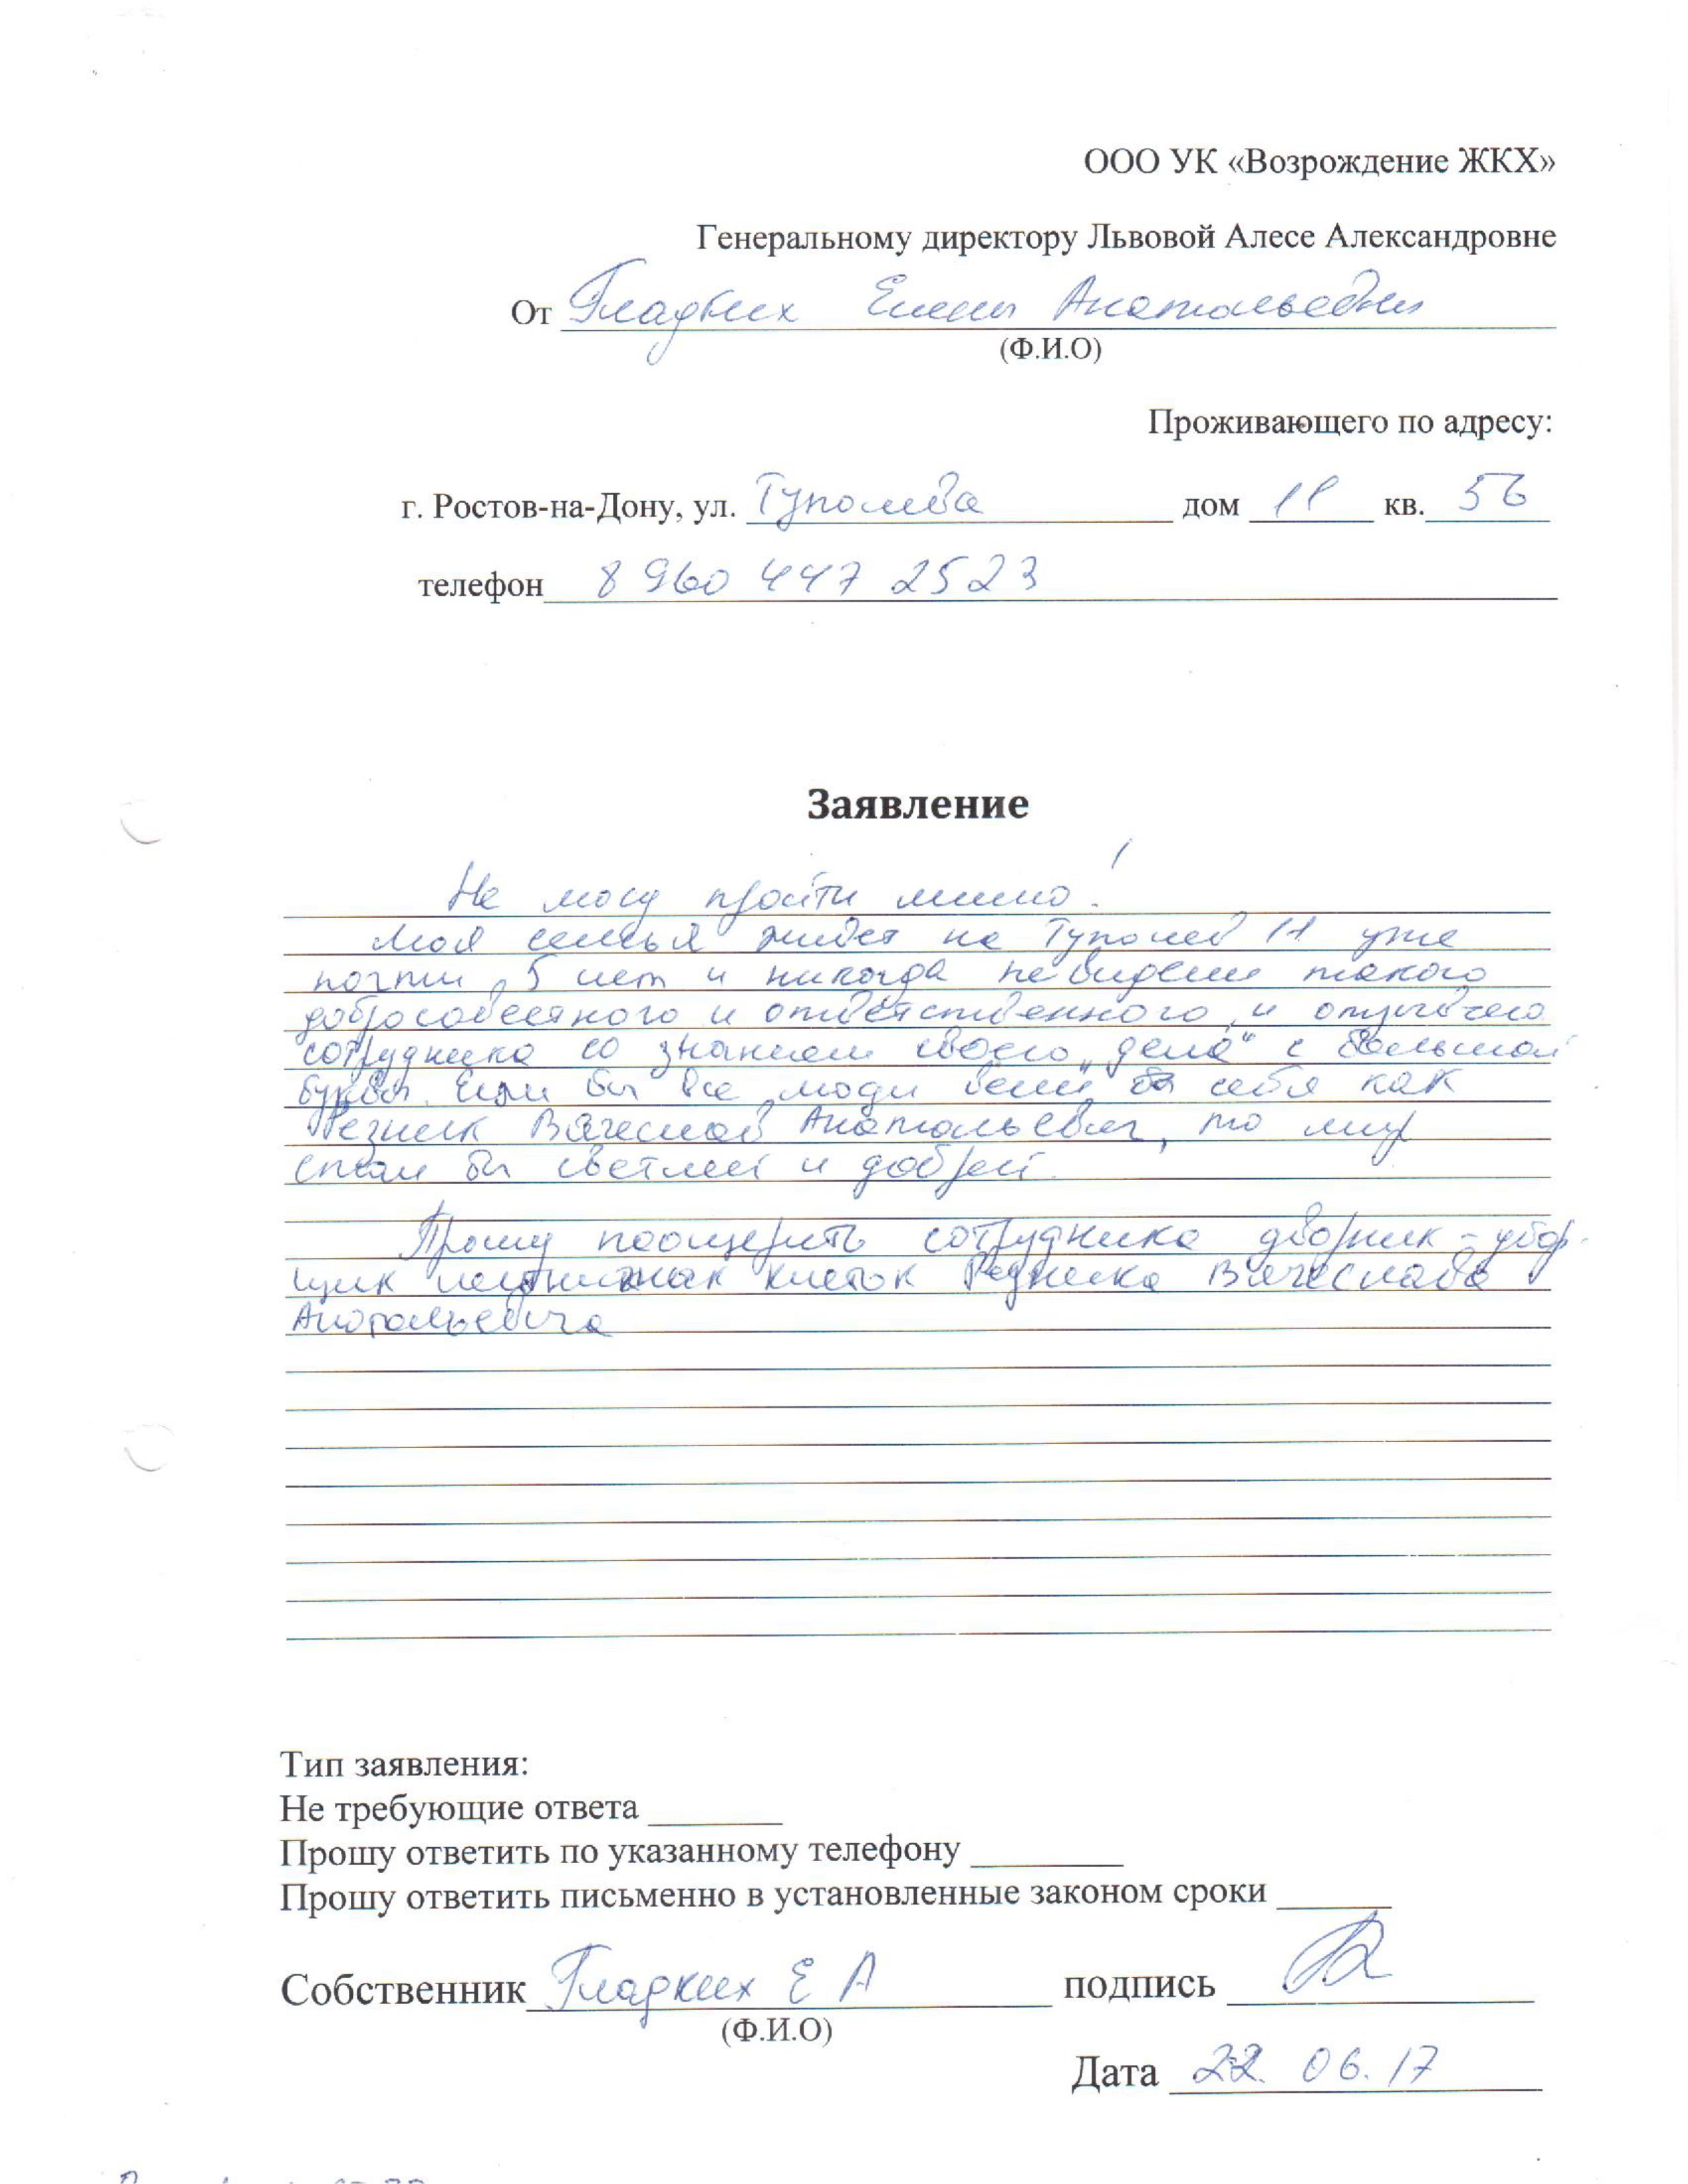 ООО УК «Возрождение ЖКХ»
Генеральному директору Львовой Алесе Александровне
От Гладких Елены Анатольевны
(Ф.И.О)
Проживающего по адресу:
г. Ростов-на-Дону, ул. Туполева дом 11 кв. 56
телефон 8 960 447 2523
Заявление
Не могу пройти мимо!
Моя семья живет на Туполев 11 уже
почти 5 лет и никогда не видели такого
добросовестного и ответственного и отзывчего
сотрудника со знанием своего „дела“ с большой
буквы. Если бы все люди вели бы себя как
Резник Вячеслав Анатольевич, то мир
стал бы светлей и добрей.
Прошу поощерить сотрудника дворник-убор-
щик лестничных клеток Резника Вячеслава
Анатольевича
Тип заявления:
Не требующие ответа
Прошу ответить по указанному телефону
Прошу ответить письменно в установленные законом сроки
Собственник Гладких Е А подпись
(Ф.И.О)
Дата 22. 06. 17